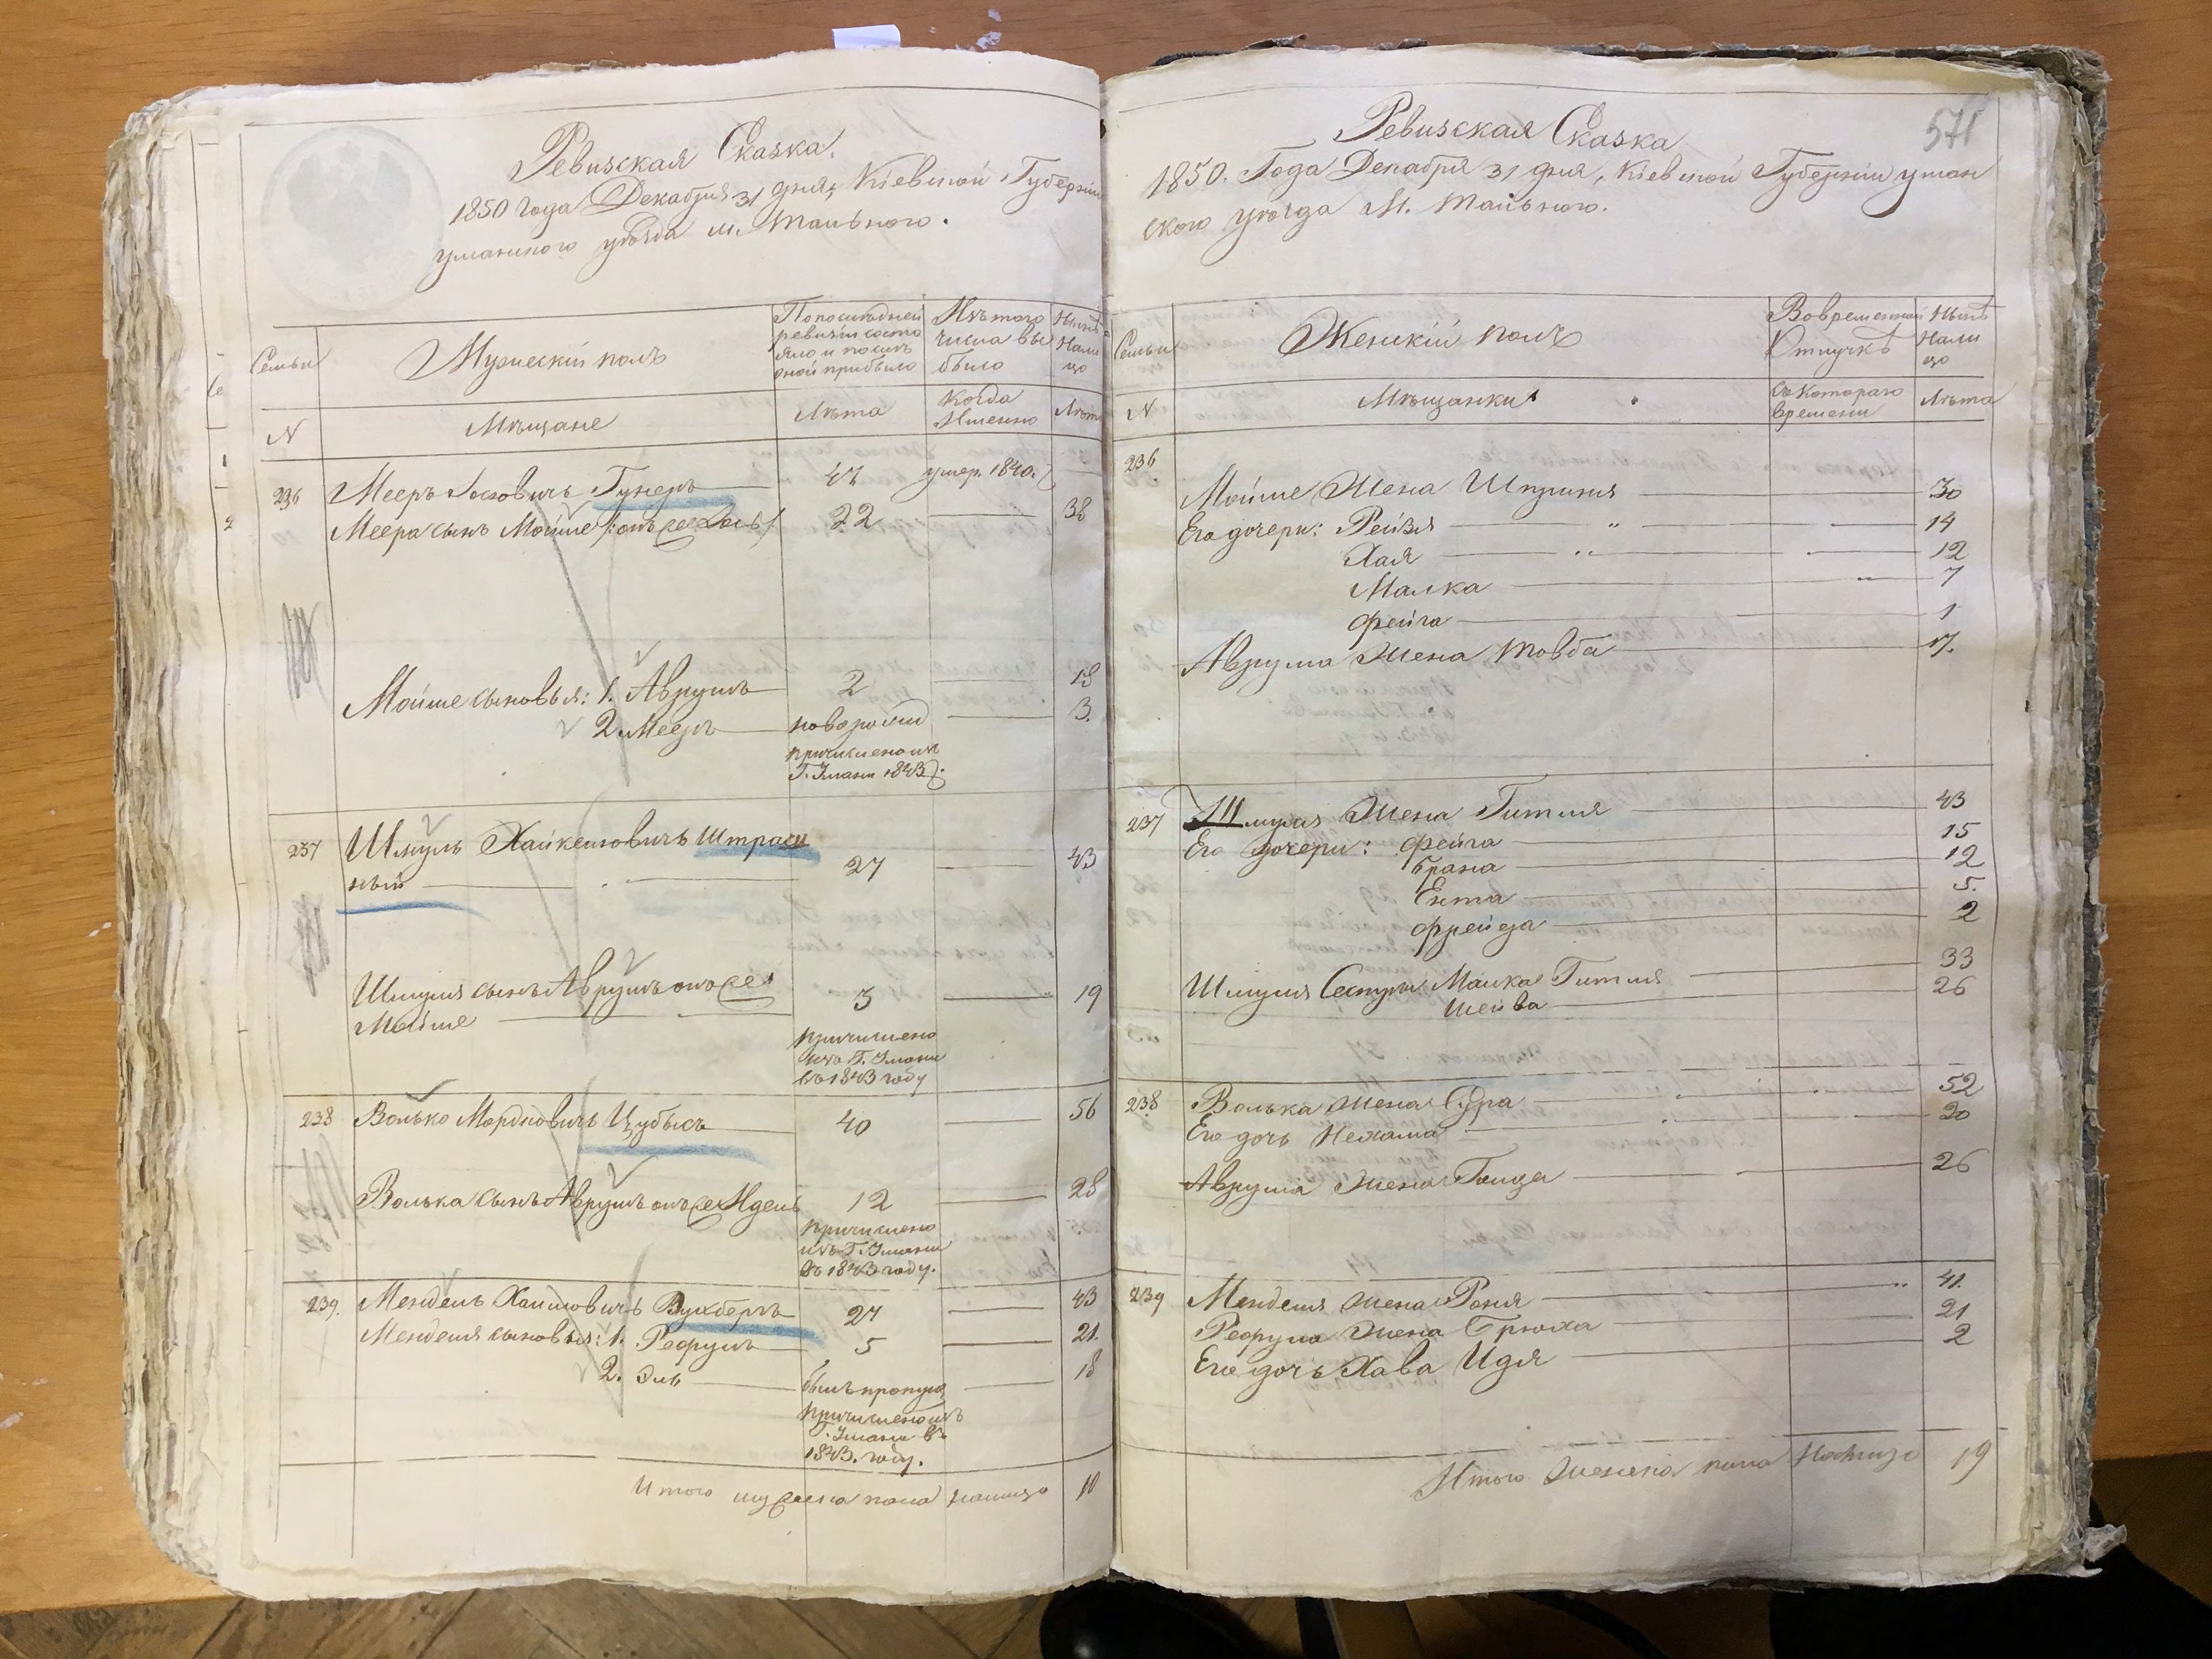 Ревизская Сказка.
1850 года Декабря 31 дня, Кіевской Губерніи
уманского уѣзда м. Тального.
Семьи
Мужескій полъ
По последней
ревизіи состо
яло и после
оной прибыло
Изъ того
числа вы
было
Нынѣ
Нали
цо
N
Мѣщане
Лѣта
Когда
Именно
Лѣта
236
Мееръ Гунеръ
47
умер. 1840.
Меера сынъ Мойше
22
38
Мойше сыновья: 1. Аврумъ
2
18
2. Мееръ
новорожд
3.
причислено изъ
Г. Умани 1843
237
Шмуль Хайкелювичъ Штрасн
ный
27
43
Шмуля сынъ Аврумъ онъ же
Мойше
3
19
причислено
изъ Г. Умани
въ 1843 году
238
Волько Мордковичъ Цубысъ
40
56
Волька сынъ Аврумъ онъ же Идель
12
28
причислено
изъ Г. Умани
въ 1843 году.
239.
Мендель Хаимовичъ Вухберъ
27
43
Менделя сыновья: 1. Рефулъ
5
21.
2. Эль
былъ пропущ
18
причислено изъ
Г. Умани въ
1843. году.
Итого мужеска пола налицо
10
571
Ревизская Сказка
1850. Года Декабря 31 дня, Кіевской Губерніи уман
ского уѣзда М. Тального.
Семьи
Женскій полъ
Во временной
Отлучкѣ
Нынѣ
Нали
цо
N
Мѣщанки
Съ котораго
времени
Лѣта
236
Мойше Жена Шпринця
30
Его дочери: Рейзя
14
Хая
12
Малка
7
Фейга
1
Аврума Жена Товба
17.
237
Шмуля Жена Гитля
43
Его дочери: Фейга
15
Брана
12
Ента
5.
Фрейда
2
Шмуля Сестры Малка Гитля
33
Шейва
26
238
Волька жена Сура
52
Его дочь Нехама
20
Аврума Жена Голда
26
239
Менделя жена Роня
41.
Рефула Жена Брюха
21
Его дочь Хава Идя
2
Итого женска пола налицо
19